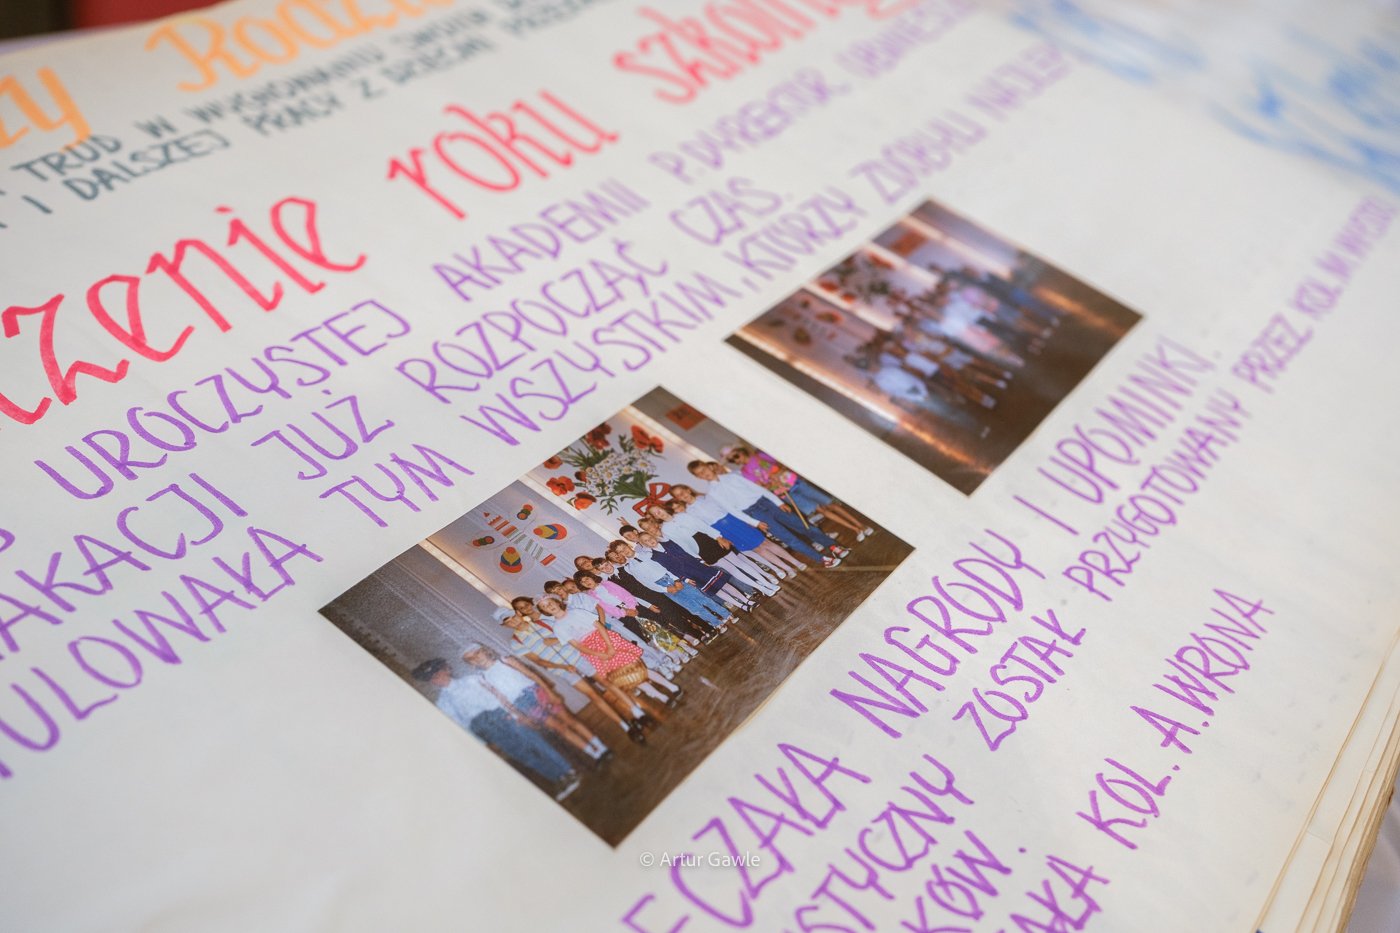 TRUD W WYCHOWANIU SWOICH
I DALSZEJ PRACY Z DZIEĆMI
zenie roku szkolne
UROCZYSTEJ AKADEMII P. DYREKTOR
AKACJI JUŻ ROZPOCZĄĆ CZAS.
ULOWAŁA TYM WSZYSTKIM, KTÓRZY ZDOBYLI
ĘCZAŁA NAGRODY I UPOMINKI.
STYCZNY ZOSTAŁ PRZYGOTOWANY PRZEZ KOL.
KÓW.
AŁA KOL. A. WRONA
© Artur Gawle